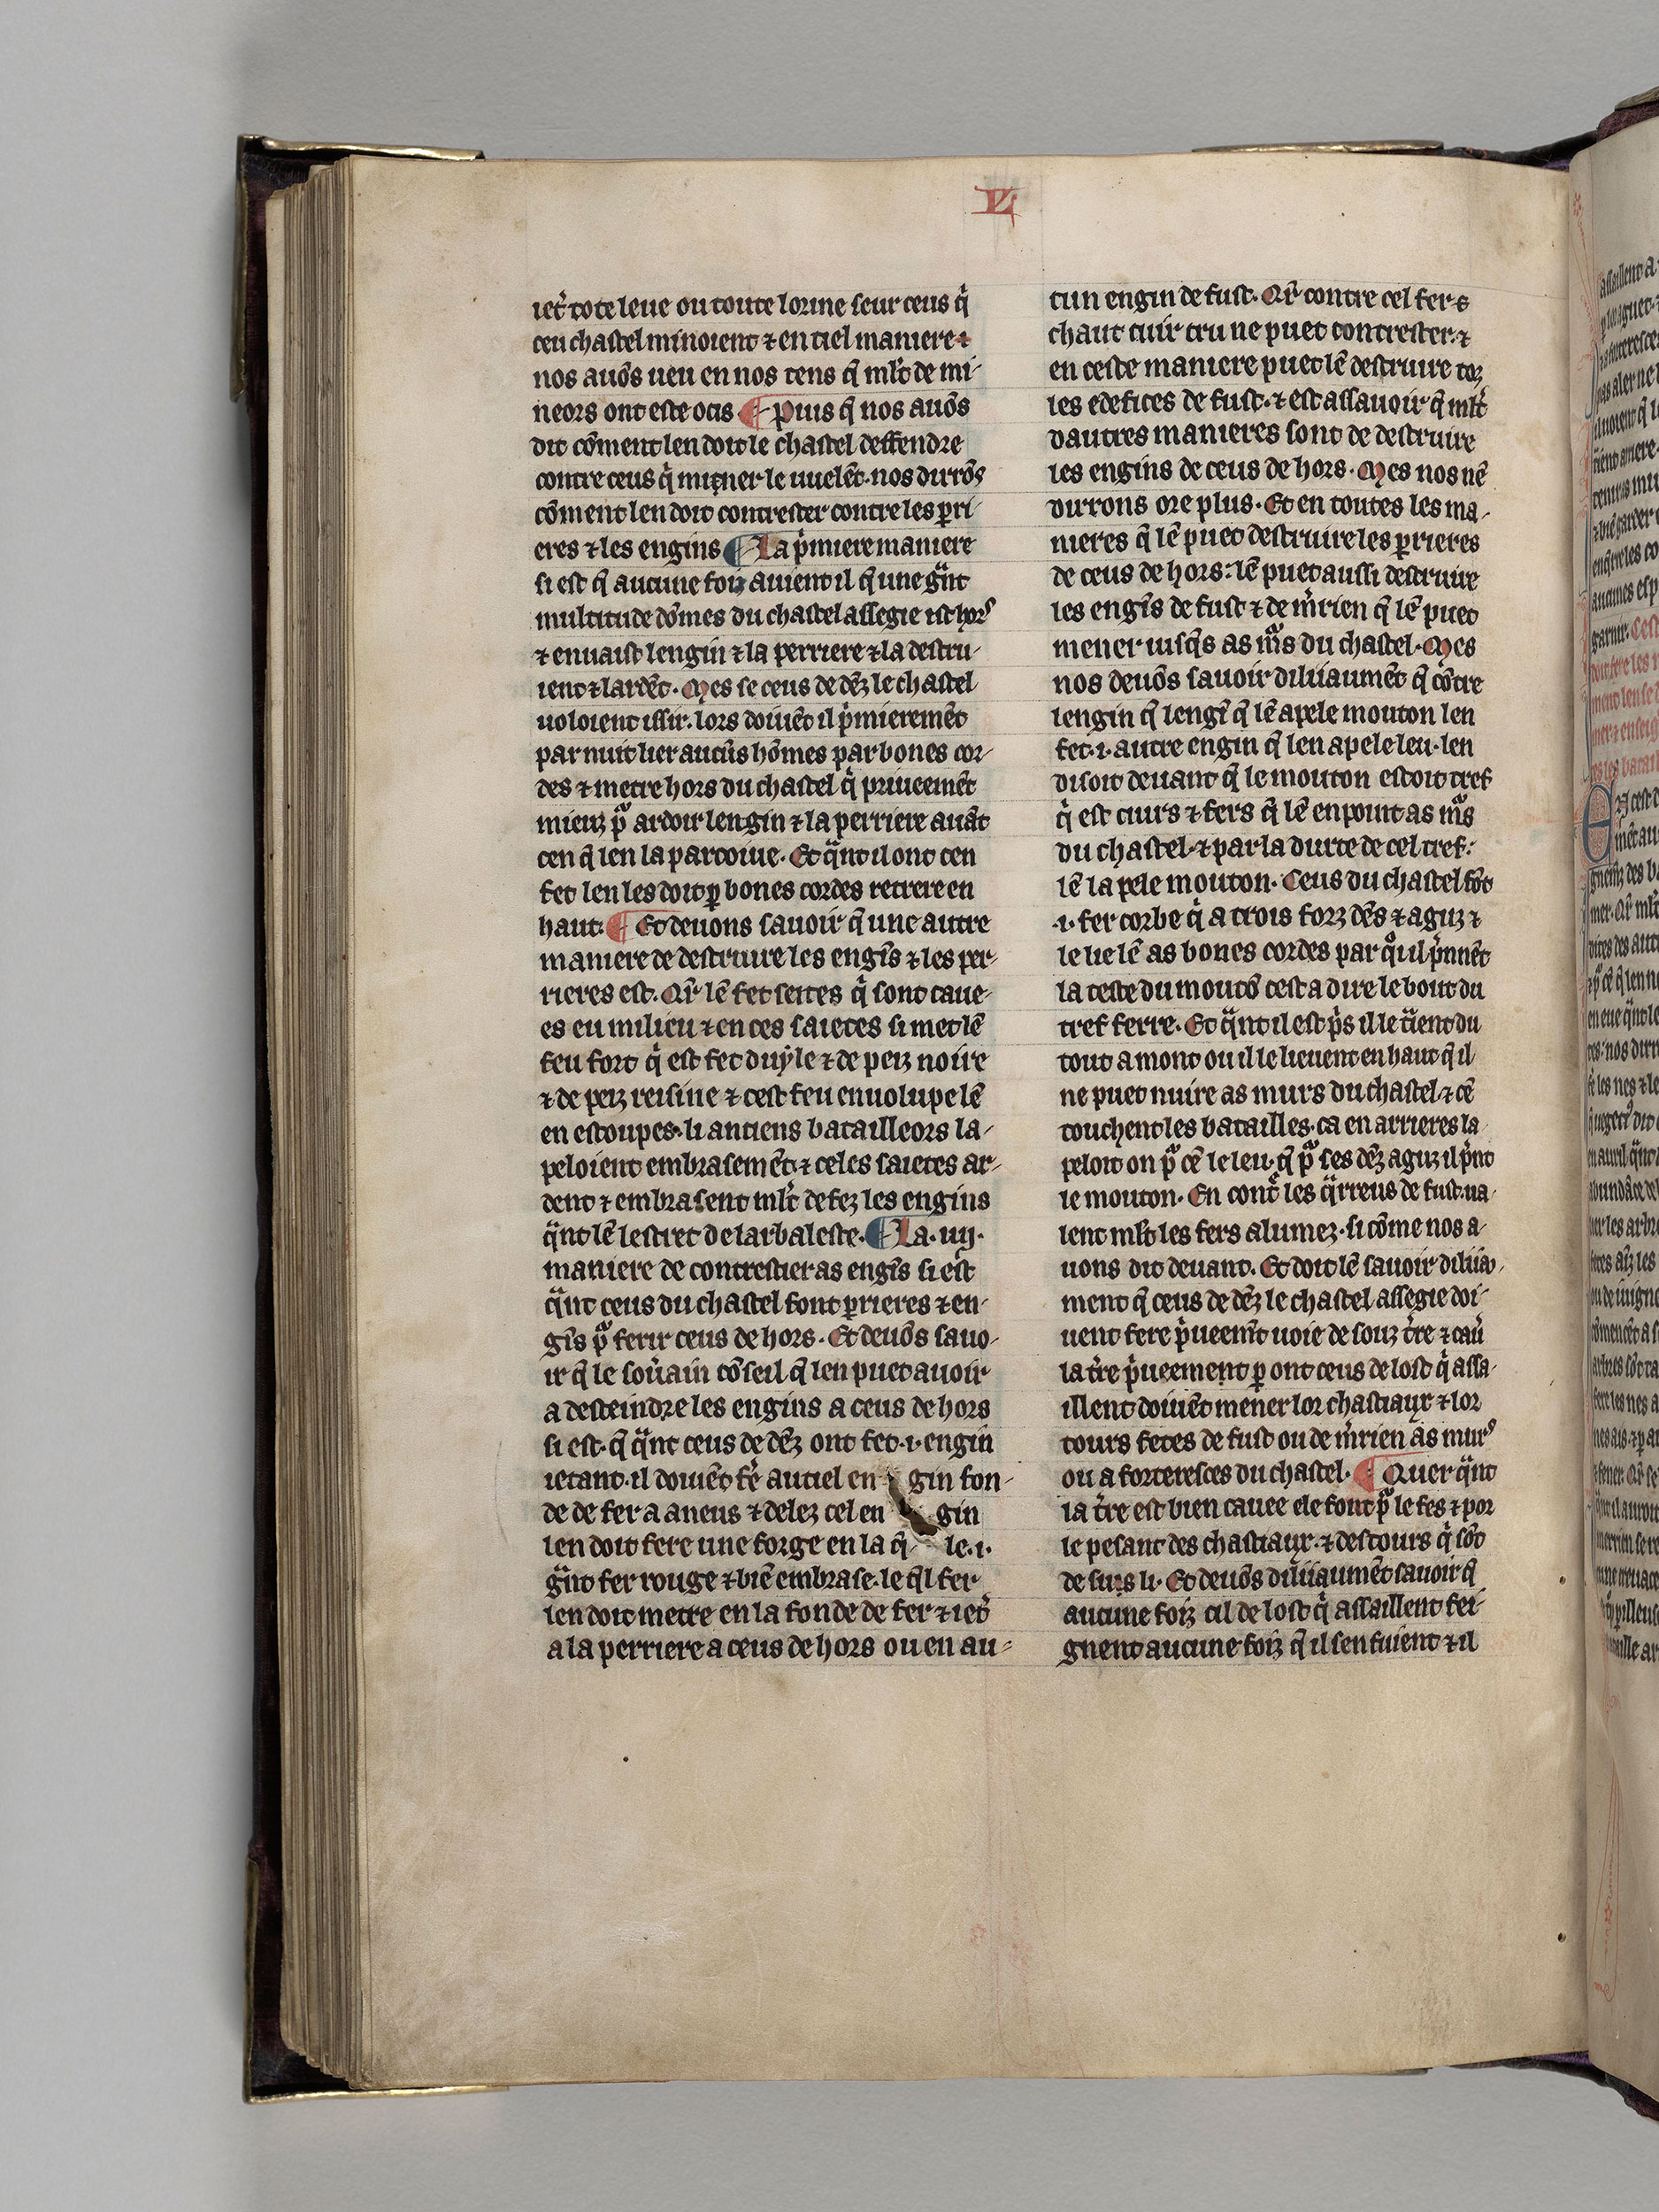 L
iet̾ tote leue ou toute lorine seur ceus q̾
ceu chastel minoient ⁊ en tiel maniere ⁊
nos auõs ueu en nos tens q̃ ml̃t de mi-
neors ont este ocis ¶ Puis q̃ nos auõs
dit cõment len doit le chastel deffendre
contre ceus q̾ miner le uuelẽt. nos dirrõs
cõment len doit contrester contre les ꝑri-
eres ⁊ les engins ¶ La p̾miere maniere
si est q̃ aucune foiz auient il q̃ une gᷓnt
multitude dõmes du chastel assegie ist hors
⁊ enuaist lengin ⁊ la perriere ⁊ la destru-
ient ⁊ lardẽt. Mes se ceus de dẽz le chastel
uoloient issir. lors doiuẽt il p̾mieremẽt
par nuit lier aucũs hõmes par bones cor-
des ⁊ metre hors du chastel q̾ priueemẽt
mieuz pᷓ ardoir lengin ⁊ la perriere auãt
cen q̃ len la parcoiue. Et qᷓnt il ont cen
fet len les doit ꝑ bones cordes retrere en
haut. ¶ Et deuons sauoir q̃ une autre
maniere de destruire les engĩs ⁊ les per-
rieres est. Qr̃ lẽ fet seites q̾ sont caue-
es eu milieu ⁊ en ces saietes si met lẽ
feu fort q̾ est fet duyle ⁊ de peiz noire
⁊ de peiz reisine ⁊ cest feu enuolupe lẽ
en estoupes. li anciens batailleors la-
peloient embrasemẽt ⁊ celes saietes ar-
dent ⁊ embrasent ml̃t de fez les engins
qᷓnt lẽ les tret de larbaleste. ¶ La .iij.
maniere de contrestier as engĩs si est
qᷓnt ceus du chastel font ꝑrieres ⁊ en-
gĩs pᷓ ferir ceus de hors. Et deuõs sauo-
ir q̃ le sou̾ain cõseil q̃ len puet auoir
a desteindre les engins a ceus de hors
si est. q̃ qᷓnt ceus de dẽz ont fet .i. engin
ietant. il doiuẽt fẽ autiel en gin fon-
de de fer a aneus ⁊ delez cel en gin
len doit fere une forge en la q̃ le .i.
gᷓnt fer rouge ⁊ biẽ embrase. le q̃l fer
len doit metre en la fonde de fer ⁊ iet̾
a la perriere a ceus de hors ou en au-
cun engin de fust. Qr̃ contre cel fer ⁊
chaut cuir cru ne puet contrester. ⁊
en ceste maniere puet lẽ destruire toz
les edefices de fust. ⁊ est assauoir q̃ ml̃t
dautres manieres sont de destruire
les engins de ceus de hors. Mes nos nẽ
dirrons ore plus. Et en toutes les ma-
nieres q̃ lẽ puet destruire les ꝑrieres
de ceus de hors: lẽ puet aussi destruire
les engĩs de fust ⁊ de m̾rien q̃ lẽ puet
mener iusq̃s as mᷓs du chastel. Mes
nos deuõs sauoir diliiaumẽt q̃ cõtre
lengin q̃ lengĩ q̃ lẽ apele mouton len
fet .i. autre engin q̃ len apele leu. len
disoit deuant q̃ le mouton estoit tref
q̾ est cuirs ⁊ fers q̃ lẽ enpoint as mᷓs
du chastel. ⁊ par la durte de cel tref:
lẽ lapele mouton. Ceus du chastel fõt
.i. fer corbe q̾ a trois forz dẽs ⁊ aguz ⁊
le lie lẽ as bones cordes par qᷓ il p̾nnẽt
la teste du moutõ cest a dire le bout du
tref ferre. Et qᷓnt il est p̾s il le tᷓient du
tout amont ou il le lieuent en haut q̃ il
ne puet nuire as murs du chastel. ⁊ cẽ
touchent les batailles. ca en arrieres la-
peloit on pᷓ cẽ le leu. q̃ pᷓ ses dẽz aguz il p̾nt
le mouton. En cont̾ les qᷓrreus de fust. ua-
lent ml̃t les fers alumez. si cõme nos a-
uons dit deuant. Et doit lẽ sauoir diliiau-
ment q̃ ceus de dẽz le chastel assegie doi-
uent fere p̾ueem̃t uoie de souz t̾re ⁊ cau̾
la t̾re p̾ueement ꝑ ont ceus de lost q̾ assa-
illent doiuẽt mener lor chastiaux ⁊ lor
tours fetes de fust ou de m̾rien as murs
ou a forteresces du chastel. ¶ Quer qᷓnt
la t̾re est bien cauee ele font pᷓ le fes ⁊ por
le pesant des chastiaux. ⁊ des tours q̾ sõt
de surs li. Et deuõs diliiaumẽt sauoir q̃
aucune foiz cil de lost q̾ assaillent fei-
gnent aucune foiz q̃ il sen fuient ⁊ il